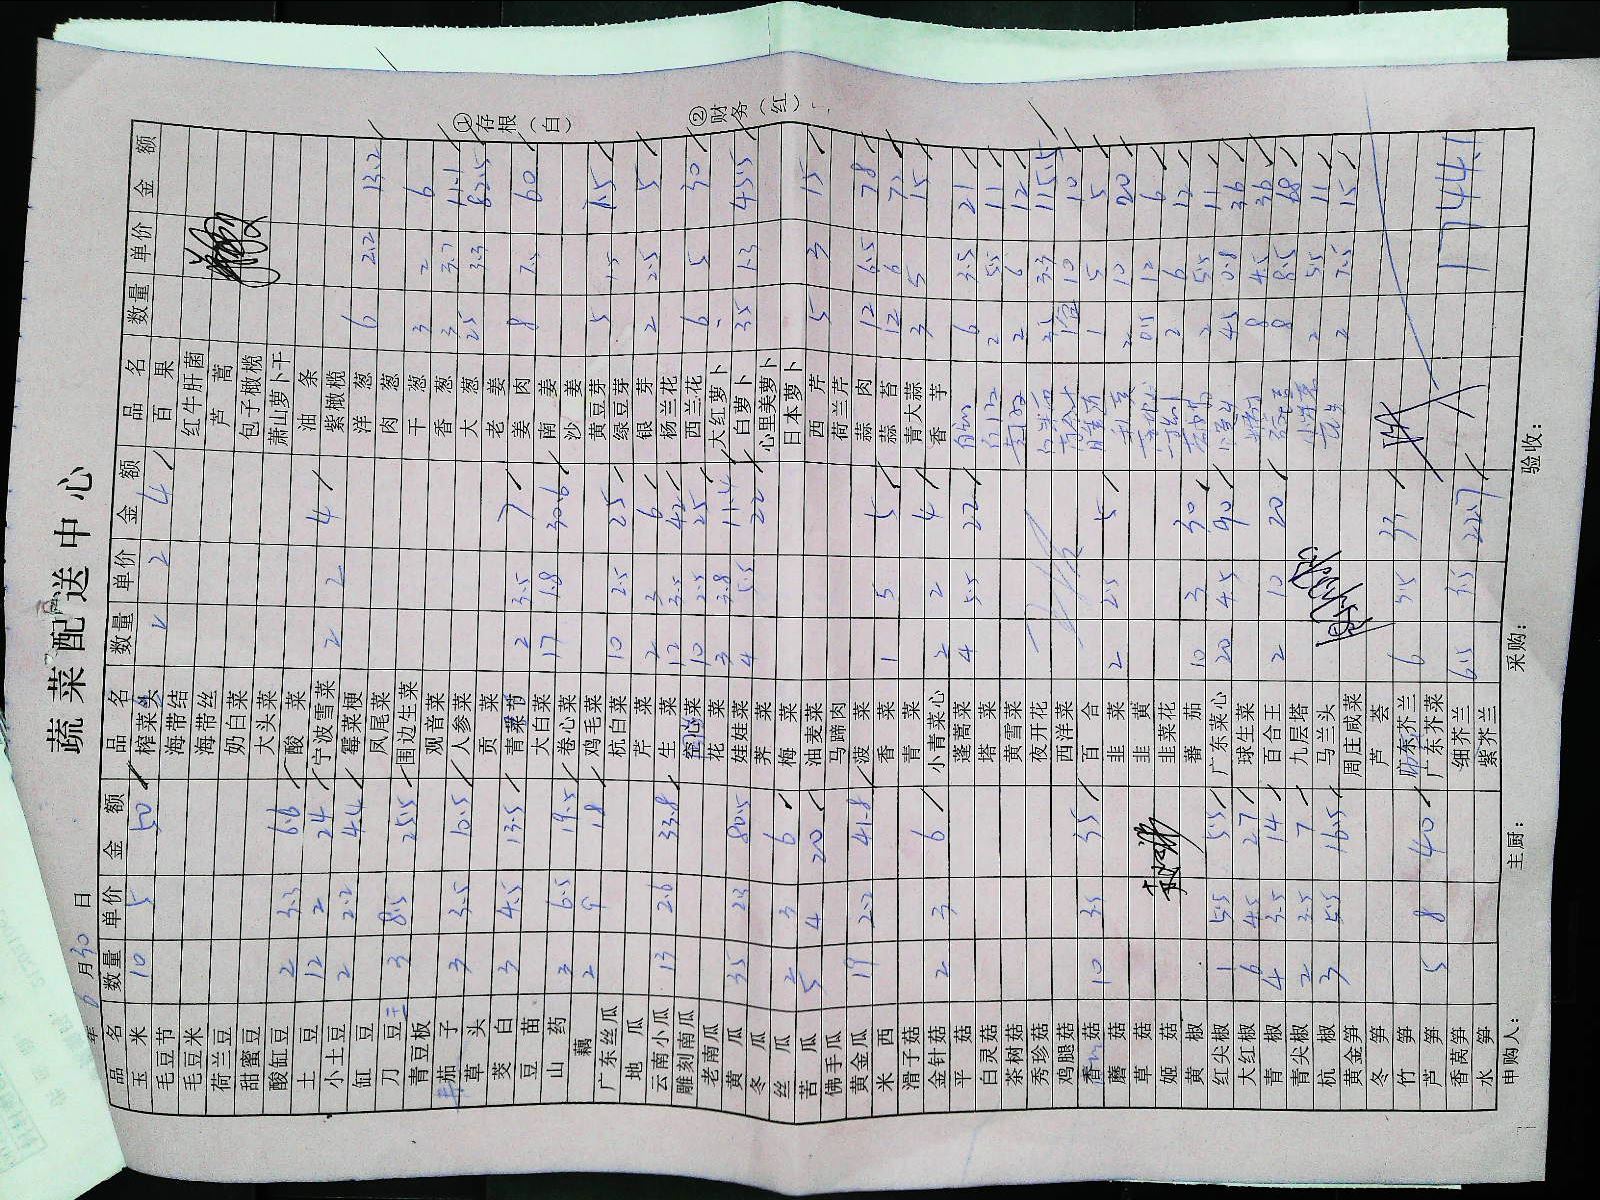 蔬菜配送中心
年 6 月 30 日
品名 数量 单价 金额 品名 数量 单价 金额 品名 数量 单价 金额
玉米 10 5 50 榨菜头 2 2 4 百果
毛豆节 海带结 红牛肝菌
毛豆米 海带丝 芦蒿
荷兰豆 奶白菜 包子橄榄
甜蜜豆 大头菜 萧山萝卜干
酸缸豆 2 3.3 6.6 酸菜 油条
土豆 12 2 24 宁波雪菜 2 2 4 紫橄榄
小土豆 2 2.2 4.4 霉菜梗 洋葱 6 2.2 13.2
缸豆 凤尾菜 肉葱
刀豆 3 8.5 25.5 围边生菜 干葱 3 2 6
青豆板 观音菜 香葱 3 3.7 11.1
茄子 3 3.5 10.5 人参菜 大葱 25 3.3 82.5
草头 贡菜 老姜
茭白 3 4.5 13.5 青菜节 2 3.5 7 姜肉 8 7.5 60
豆苗 大白菜 17 1.8 30.6 南姜
山药 3 6.5 19.5 卷心菜 沙姜
藕 2 9 18 鸡毛菜 黄豆芽 5 1.5 7.5
广东丝瓜 杭白菜 10 2.5 25 绿豆芽
地瓜 芹菜 2 3 6 银芽 2 2.5 5
云南小瓜 13 2.6 33.8 生菜 12 3.5 42 杨兰花
雕刻南瓜 空心菜 10 2.5 25 西兰花 6 5 30
老南瓜 花菜 3 3.8 11.4 大红萝卜
黄瓜 35 2.3 80.5 娃娃菜 4 5.5 22 白萝卜 35 1.3 45.5
冬瓜 荠菜 心里美萝卜
丝瓜 2 3 6 梅菜 日本萝卜
苦瓜 5 4 20 油麦菜 西芹 5 3 15
佛手瓜 马蹄肉 荷兰芹
黄金瓜 19 2.2 41.8 菠菜 蒜肉 12 6.5 78
米西 香菜 1 5 5 蒜苔 12 6 72
滑子菇 青菜 青大蒜 3 5 15
金针菇 2 3 6 小青菜心 2 2 4 香芋
平菇 蓬蒿菜 4 5.5 22 6 3.5 21
白灵菇 塔菜 2 5.5 11
茶树菇 黄雪菜 2 6 12
秀珍菇 夜开花 35 3.3 115.5
鸡腿菇 西洋菜 10 10
香菇 10 3.5 35 百合 1 5 5
蘑菇 韭菜 2 2.5 5 2 10 20
草菇 韭黄 0.5 12 6
姬菇 韭菜花 2 6 12
黄椒 蕃茄 10 3 30 2 5.5 11
红尖椒 1 5.5 5.5 广东菜心 20 4.5 90 45 0.8 36
大红椒 6 4.5 27 球生菜 8 4.5 36
青椒 4 3.5 14 百合王 2 10 20 8 8.5 68
青尖椒 2 3.5 7 九层塔 2 5.5 11
杭椒 3 5.5 16.5 马兰头 2 7.5 15
黄金笋 周庄咸菜
冬笋 芦荟
竹笋 广东芥兰 6 5.5 33
芦笋 5 8 40 广东芥菜
香莴笋 细芥兰 6.5 3.5 22.7 1744.1
水笋 紫芥兰
申购人： 主厨： 采购： 验收：
①存根（白）
②财务（红）